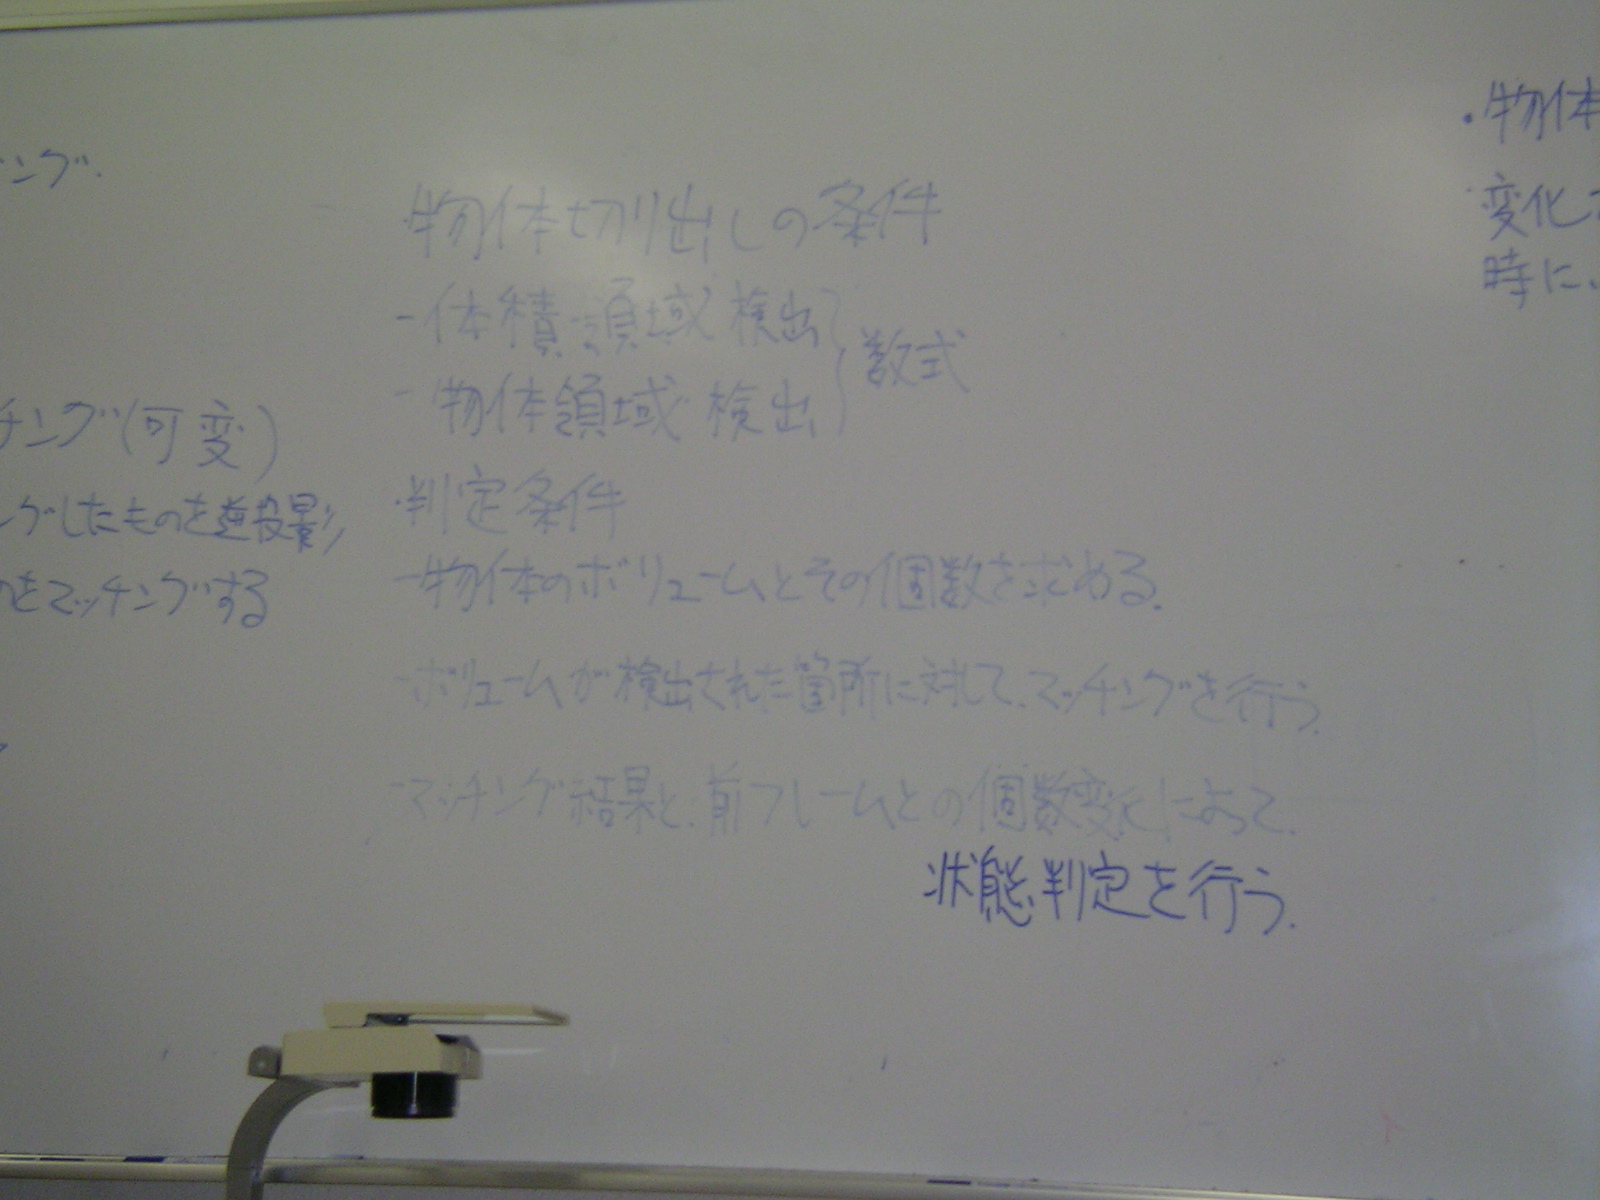 ング.
チング(可変)
ングしたものを逆投影し
のをマッチングする
・物体切り出しの条件
-体積領域検出
-物体領域検出
数式
・判定条件
-物体のボリュームとその個数を求める.
-ボリュームが検出された箇所に対して、マッチングを行う.
-マッチング結果と、前フレームとの個数変化によって、
状態判定を行う.
・物体
変化
時に、